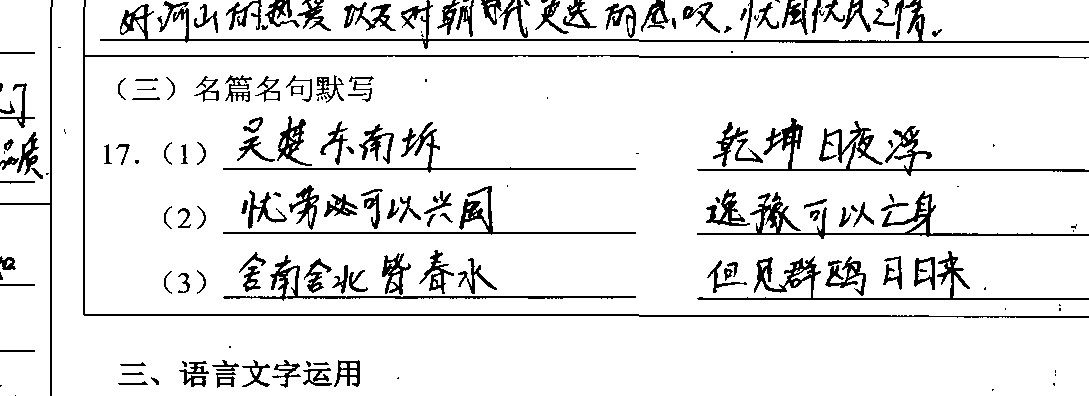 好河山的热爱以及对朝代更迭的感叹,忧国忧民之情。
(三)名篇名句默写
17.(1)吴楚东南坼 乾坤日夜浮
(2)忧劳可以兴国 逸豫可以亡身
(3)舍南舍北皆春水 但见群鸥日日来.
三、语言文字运用